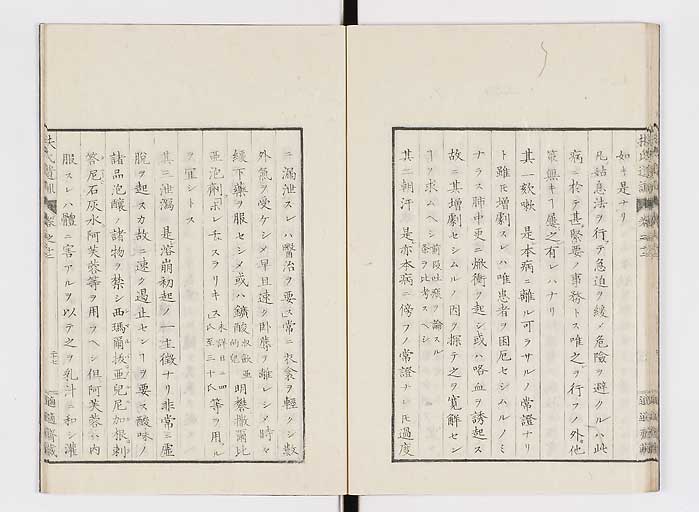 如キ是ナリ
凡姑息法ヲ行テ急迫ヲ緩メ危險ヲ避クルハ此
病ニ於テ甚緊要ノ事務トス唯之ヲ行フノ外他
策無キ丁屡之有レハナリ
其一欬嗽 是本病ニ離ル可ラサルノ常證ナリ
ト雖モ増劇スレハ唯患者ヲ困厄セシムルノミ
ナラス肺中更ニ焮衝ヲ起シ或ハ咯血ヲ誘起ス
故ニ其増劇セシムルノ因ヲ探テ之ヲ寛解セン
丁ヲ求ムヘシ 前段吐痰ヲ論スル
條ヲ比考スヘシ
其二朝汗 是亦本病ニ傍フノ常證ナレ𪜈過度
ニ漏泄スレハ醫治ヲ要ス常ニ衣衾ヲ輕クシ數
外氣ヲ受ケシメ早旦速ク臥蓐ヲ離レシメ時々
緩下藥ヲ服セシメ或ハ鑛酸 明礬撒爾比
亞泡劑 等ヲ用ル
ヲ宜シトス
其三泄瀉 是溶崩初起ノ一主徴ナリ非常ニ虚
脱ヲ起スカ故ニ速ク遏止セン丁ヲ要ス酸味ノ
諸品泡釀ノ諸物ヲ禁シ西瑪爾拔亞兒尼加根刺
答尼石灰水阿芙蓉等ヲ用フヘシ但阿芙蓉ハ内
服スレハ體ニ害アルヲ以テ之ヲ乳汁ニ和シ灌
扶氏遺訓
適適齋藏